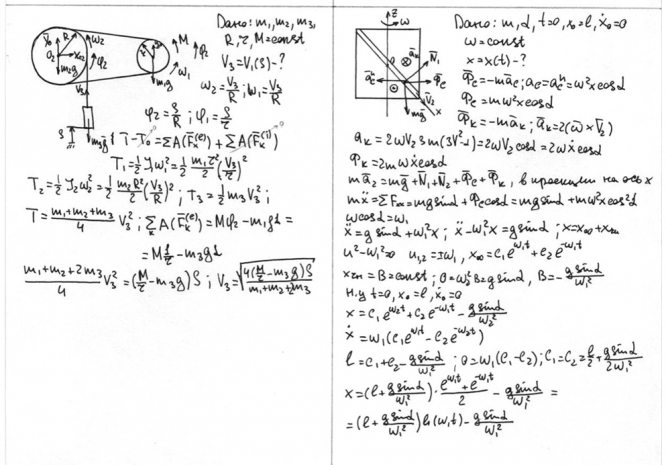 Дано: m₁, m₂, m₃,
R, r, M=const
V₃=V₃(S)-?
ω₂=V₃/R; ω₁=V₃/R
φ₂=S/R; φ₁=S/r
T-T₀=ΣA(F̄ₖ⁽ᵉ⁾)+ΣA(F̄ₖ⁽ⁱ⁾)
T₁=½J₁ω₁²=½ m₁r²/2 (V₃/r)²
T₂=½J₂ω₂²=½ m₂R²/2 (V₃/R)²; T₃=½m₃V₃²;
T=(m₁+m₂+m₃)/4 V₃²; ΣA(F̄ₖ⁽ᵉ⁾)=Mφ₂-m₁gs=
=M S/r-m₃gs
(m₁+m₂+2m₃)/4 V₃²=(M/r-m₃g)S; V₃=√(4(M/r-m₃g)S/(m₁+m₂+2m₃))
Дано: m, α, t=0, x₀=l, ẋ₀=0
ω=const
x=x(t)-?
Φ̄ₑ=-māₑ; aₑ=aₑⁿ=ω²xcosα
Φ̄ₑ=mω²xcosα
Φ̄ₖ=-māₖ; āₖ=2(ω̄×V̄₂)
aₖ=2ωV₂ cosα=2ωẋcosα
Φₖ=2mωẋcosα
mā₂=mḡ+N̄₁+N̄₂+Φ̄ₑ+Φ̄ₖ, в проекции на ось x
mẍ=ΣFₖₓ=mgsinα+Φₑcosα=mgsinα+mω²xcos²α
ωcosα=ω₁
ẍ=gsinα+ω₁²x; ẍ-ω₁²x=gsinα; x=x₀₀+xчн
u²-ω₁²=0 u₁,₂=±ω₁, x₀₀=C₁e^(ω₁t)+C₂e^(-ω₁t)
xчн=B=const; 0=ω₁²B=gsinα, B=-gsinα/ω₁²
н.у t=0, x₀=l, ẋ₀=0
x=C₁e^(ω₂t)+C₂e^(-ω₁t)-gsinα/ω₂²
ẋ=ω₁(C₁e^(ω₁t)-C₂e^(-ω₂t))
l=C₁+C₂-gsinα/ω₁²; 0=ω₁(C₁-C₂); C₁=C₂=l/2+gsinα/2ω₁²
x=(l+gsinα/ω₁²)·(e^(ω₁t)+e^(-ω₁t))/2-gsinα/ω₁²=
=(l+gsinα/ω₁²)ch(ω₁t)-gsinα/ω₁²